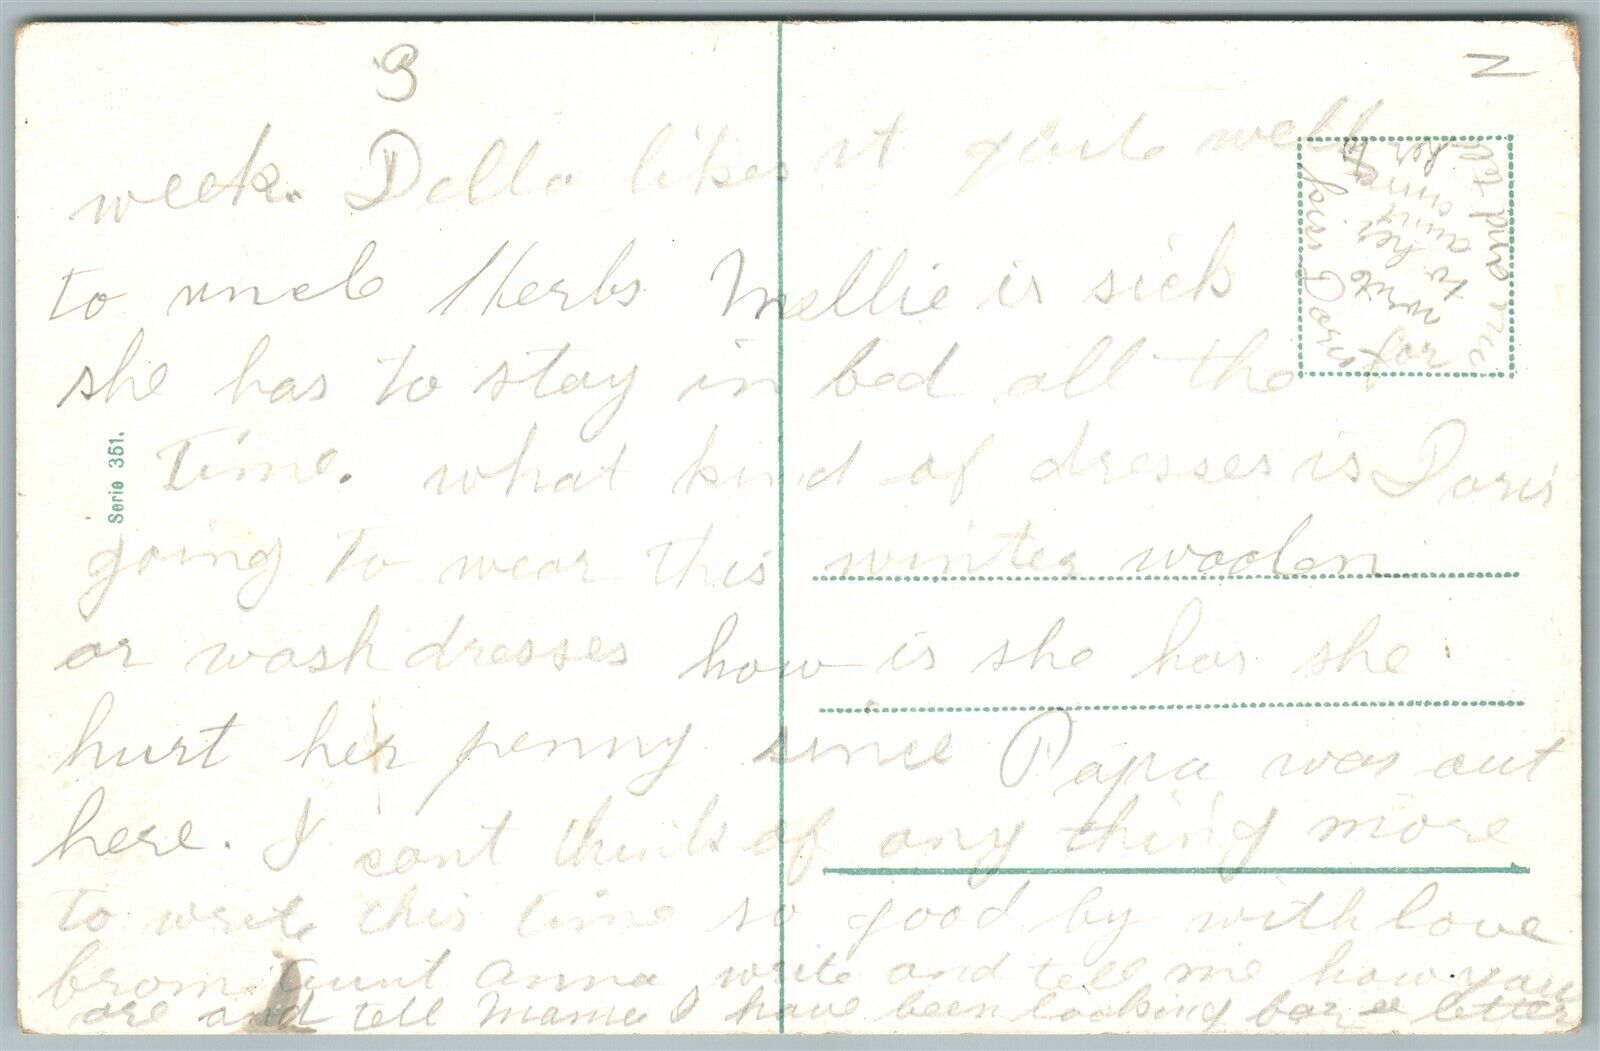 3
week. Della likes it quite well
to uncle Herbs Mellie is sick
she has to stay in bed all the
time. what kind of dresses is Doris
going to wear this winter woolen
or wash dresses how is she has she
hurt her penny since Papa was out
here. I cant think of any thing more
to write this time so good by with love
from Aunt Anna write and tell me how you
are and tell Mamie I have been looking for a letter
Serie 351.
Kiss Doris for me and
write to her
any time